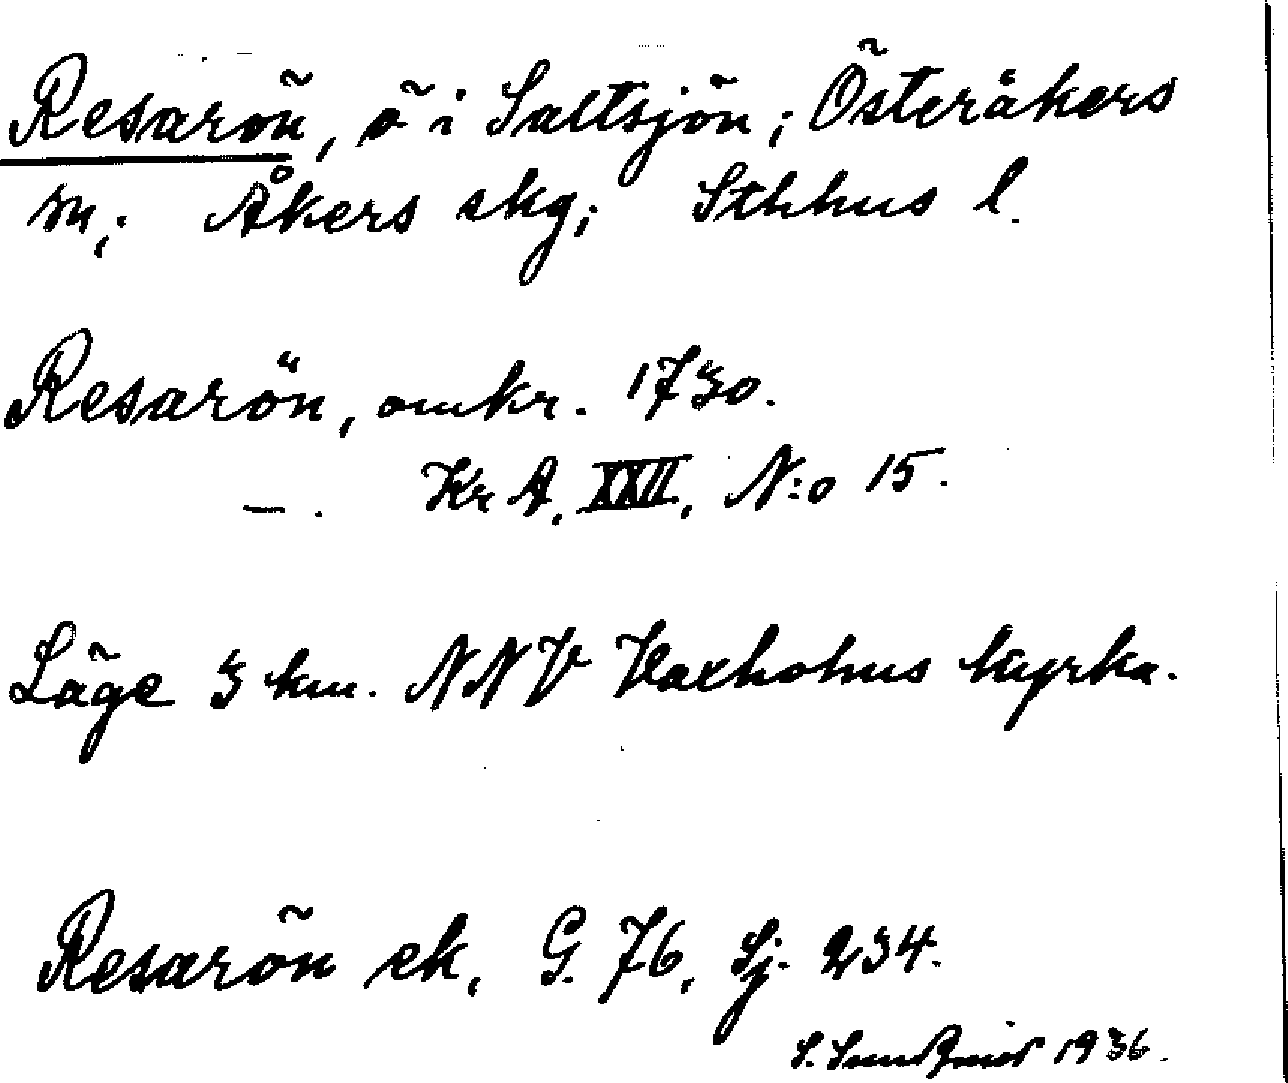 Resarön, ö i Saltsjön; Österåkers
sn; Åkers skg; Sthlms l.
Resarön, omkr. 1730.
— . Kr A, XXII, N:o 15.
Läge 3 km. NNV Vaxholms kyrka.
Resarön ek, G. 76, Sj. 234.
S. 1936.